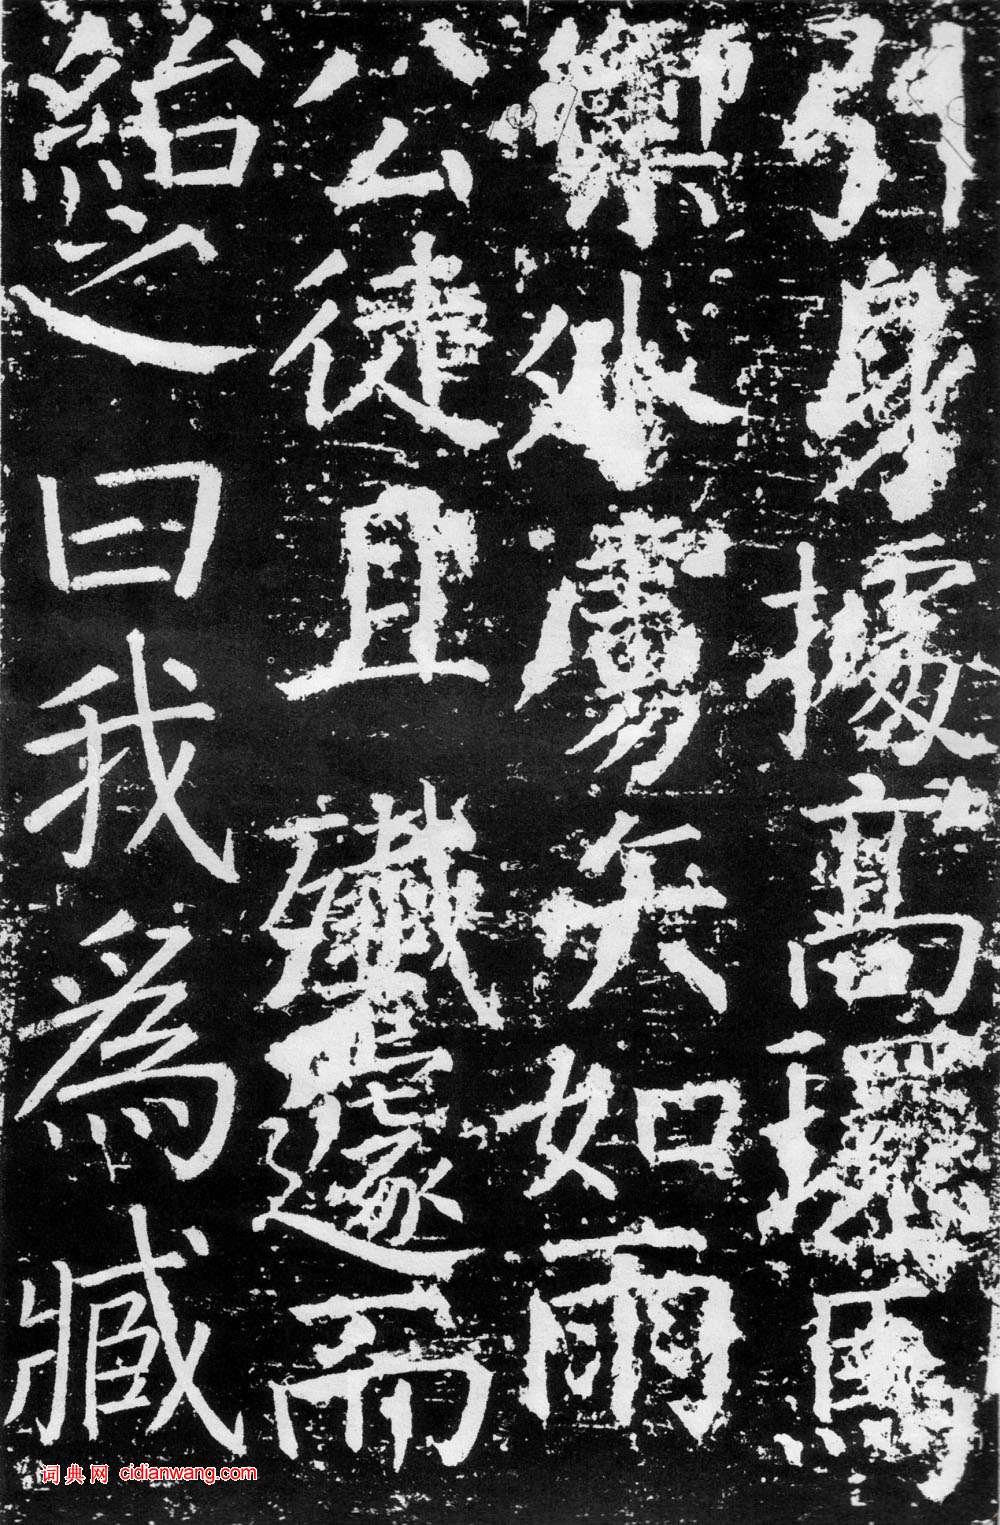 引身據高環馬
禦外虜矢如雨
公徒且殲遽而
紿之曰我為臧
词典网 cidianwang.com